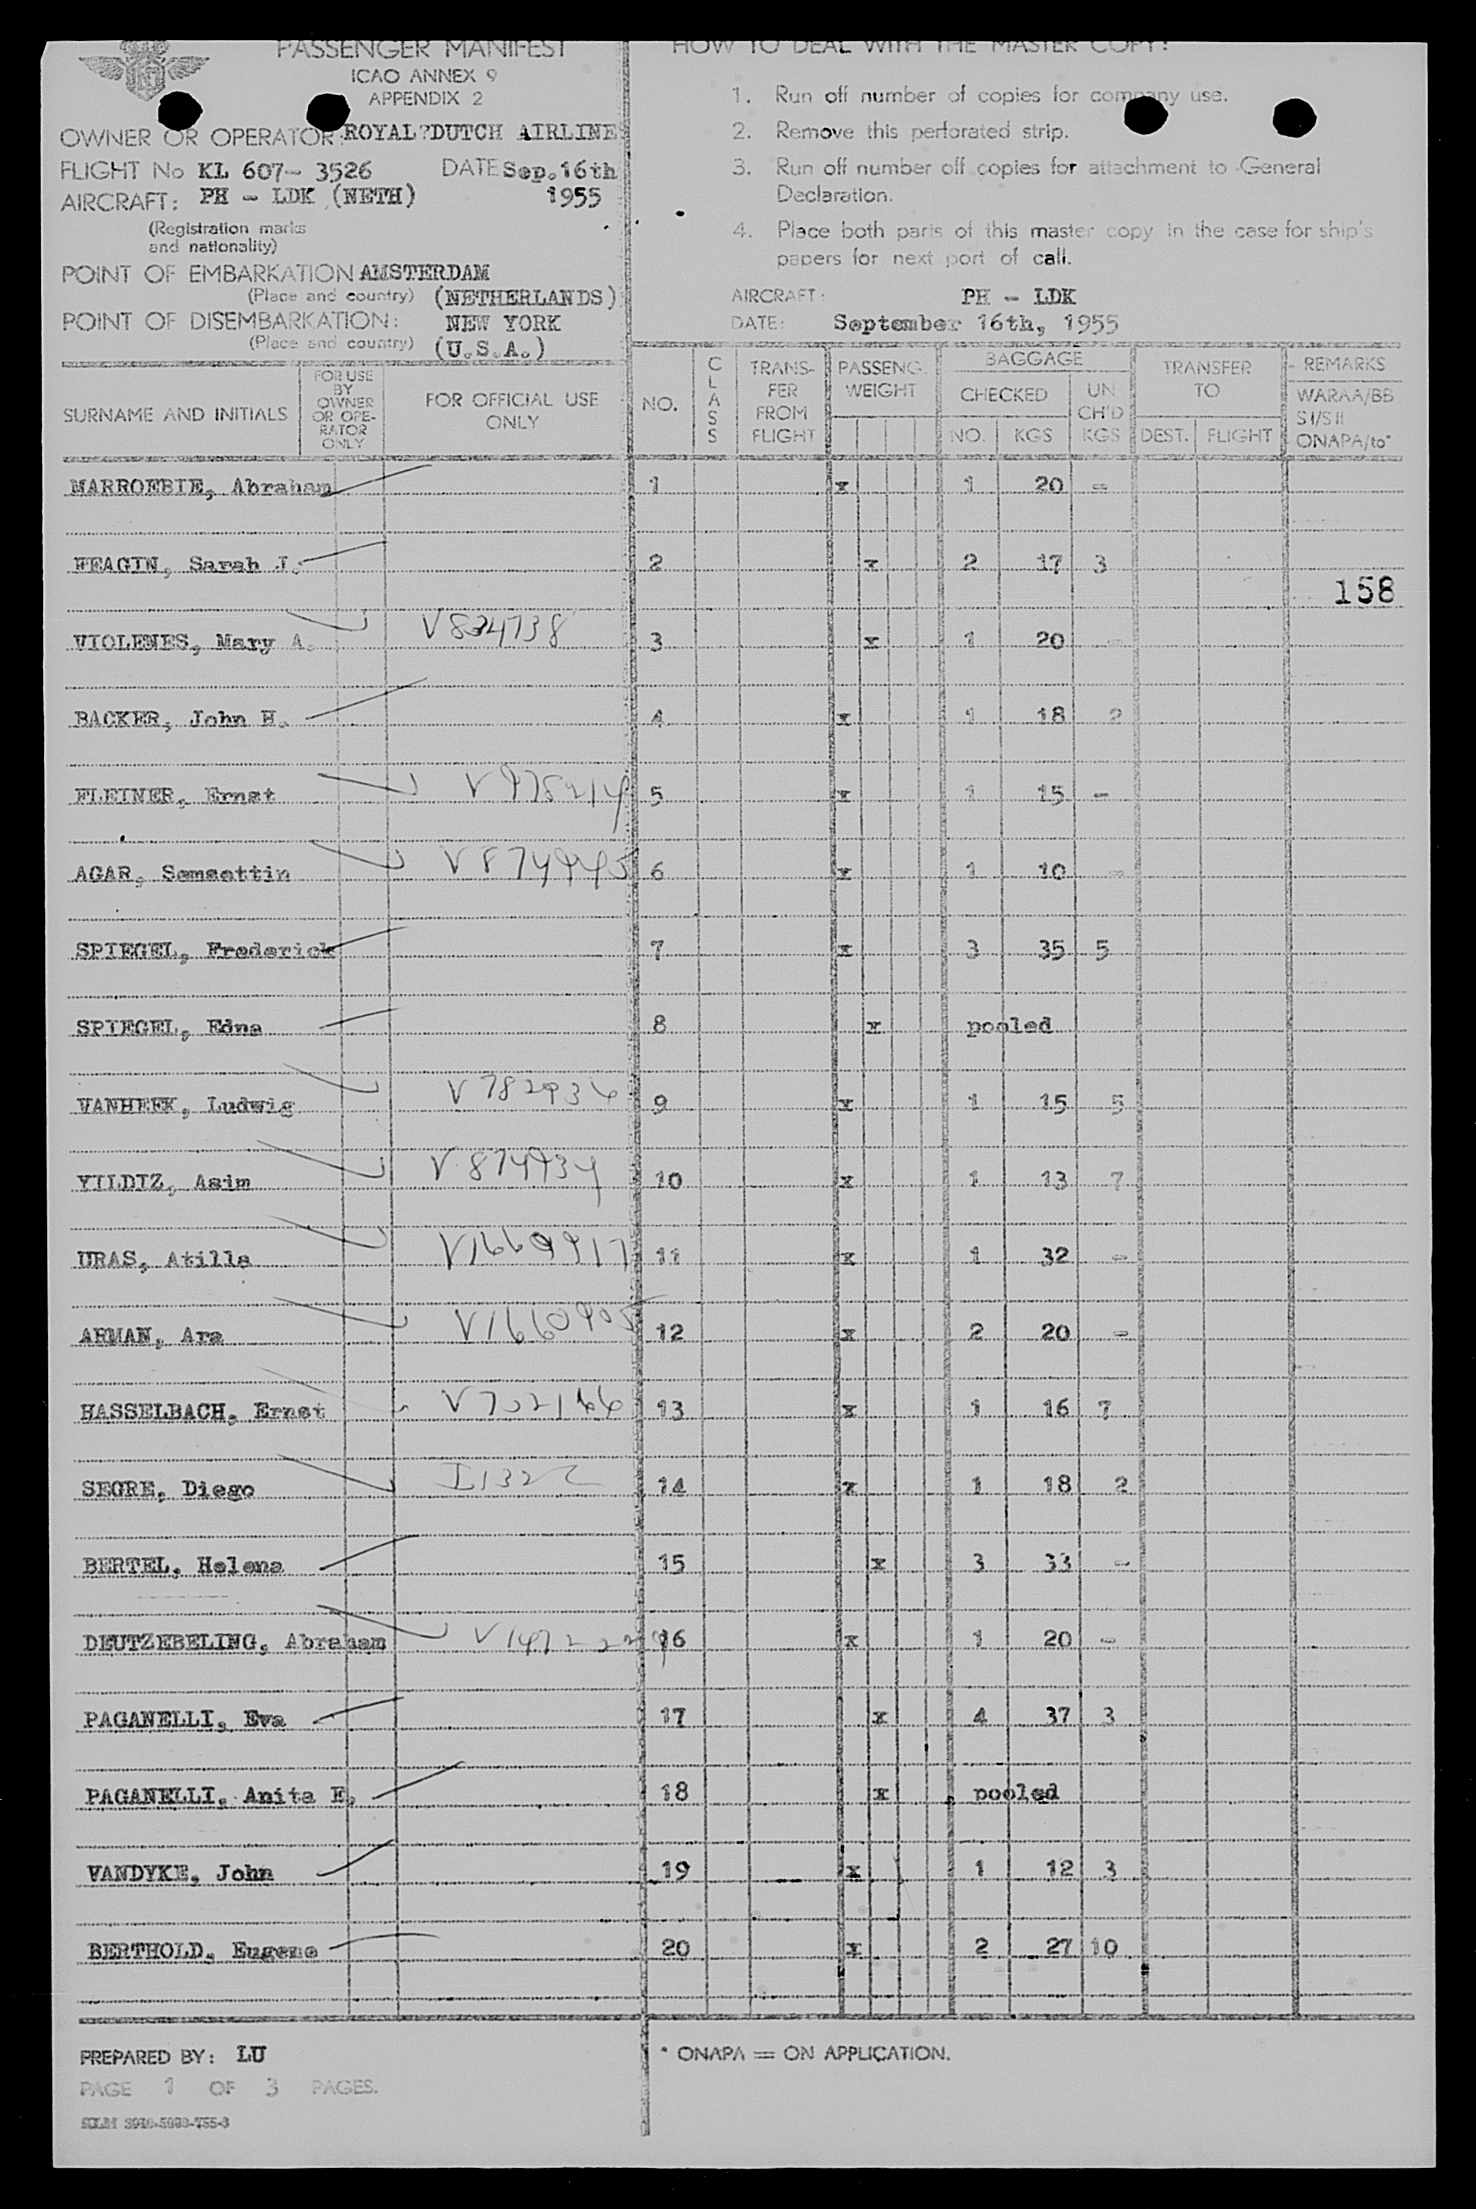 PASSENGER MANIFEST
ICAO ANNEX 9
APPENDIX 2
OWNER OR OPERATOR: ROYAL?DUTCH AIRLINES
FLIGHT No KL 607- 3526 DATE Sep.16th
AIRCRAFT: PH - LDK (NETH) 1955
(Registration marks
and nationality)
POINT OF EMBARKATION AMSTERDAM
(Place and country) (NETHERLANDS)
POINT OF DISEMBARKATION: NEW YORK
(Place and country) (U.S.A.)
HOW TO DEAL WITH THE MASTER COPY:
1. Run off number of copies for company use.
2. Remove this perforated strip.
3. Run off number off copies for attachment to General
Declaration.
4. Place both parts of this master copy in the case for ship's
papers for next port of call.
AIRCRAFT: PH - LDK
DATE: September 16th, 1955
SURNAME AND INITIALS
FOR USE
BY
OWNER
OR OPE-
RATOR
ONLY
FOR OFFICIAL USE
ONLY
NO.
CLASS
TRANS-
FER
FROM
FLIGHT
PASSENG.
WEIGHT
BAGGAGE
CHECKED
NO. KGS
UN
CH'D
KGS
TRANSFER
TO
DEST. FLIGHT
REMARKS
WARAA/BB
SI/SII
ONAPA/to*
MARROEBIE, Abraham 1 x 1 20 -
HEAGIN, Sarah J. 2 x 2 17 3
158
VIOLENES, Mary A. V834738 3 x 1 20 -
BACKER, John H. 4 x 1 18 2
FLEINER, Ernst V978214 5 x 1 15 -
AGAR, Semsettin V874945 6 x 1 10 -
SPIEGEL, Frederick 7 x 3 35 5
SPIEGEL, Edna 8 x pooled
VANHEEK, Ludwig V782936 9 x 1 15 5
YILDIZ, Asim V874934 10 x 1 13 7
URAS, Atilla V1660917 11 x 1 32 -
ARMAN, Ara V1660905 12 x 2 20 -
HASSELBACH, Ernst V702166 13 x 1 16 7
SEGRE, Diego I1322 14 x 1 18 2
BERTEL, Helena 15 x 3 33 -
DEUTZEBELING, Abraham V1472229 16 x 1 20 -
PAGANELLI, Eva 17 x 4 37 3
PAGANELLI, Anita E. 18 x pooled
VANDYKE, John 19 x 1 12 3
BERTHOLD, Eugene 20 x 2 27 10
PREPARED BY: LU
PAGE 1 OF 3 PAGES.
* ONAPA = ON APPLICATION.